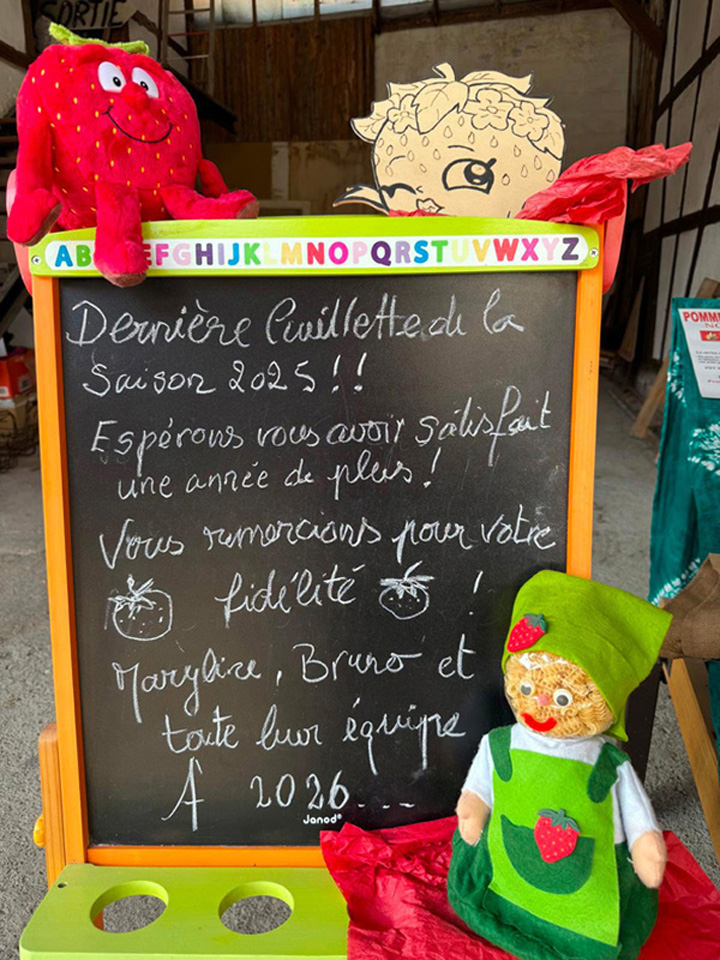 SORTIE
ABCDEFGHIJKLMNOPQRSTUVWXYZ
Dernière Cueillette de la
Saison 2025 !!
Espérons vous avoir satisfait
une année de plus !
Vous remercions pour votre
fidélité !
Maryline, Bruno et
toute leur équipe
À 2026...
Janod®
POMM